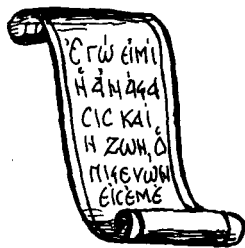 Ἐγώ εἰμι
ἡ ἀνάϛα
ϲιϲ καὶ
ἡ ζωὴ, ὁ
πιϛεύων
εἰϲ ἐμέ